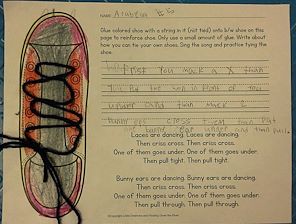 NAME Arabella
Glue colored shoe with a string in it (not tied) onto b/w shoe on this
page to reinforce shoe. Only use a small amount of glue. Write about
how you can tie your own shoes. Sing the song and practice tying the
shoe.
First you mack a X than
you put the in front of you
under and than mack 2
bunny ers cross them than put
one bunny ear under and than pull.
Laces are dancing. Laces are dancing.
Then criss cross. Then criss cross.
One of them goes under. One of them goes under.
Then pull tight. Then pull tight.
Bunny ears are dancing. Bunny ears are dancing.
Then criss cross. Then criss cross.
One of them goes under. One of them goes under.
Then pull through. Then pull through.